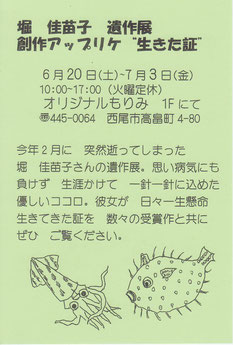 堀 佳苗子 遺作展
創作アップリケ "生きた証"
6月20日(土)~7月3日(金)
10:00-17:00 (火曜定休)
オリジナルもりみ 1Fにて
〠445-0064 西尾市高畠町4-80
今年2月に 突然逝ってしまった
堀 佳苗子さんの遺作展。思い病気にも
負けず 生涯かけて 一針一針に込めた
優しいココロ。彼女が 日々一生懸命
生きてきた証を 数々の受賞作と共に
ぜひ ご覧ください。